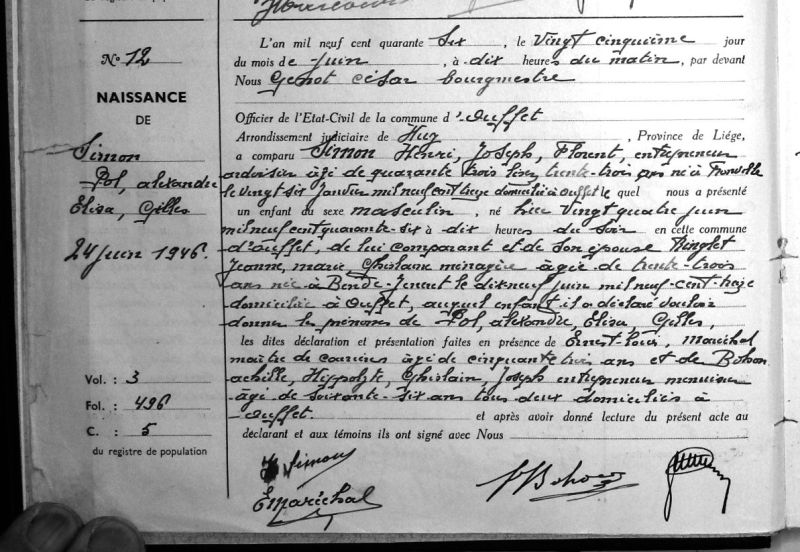 N° 12
NAISSANCE
DE
Simon
Pol, alexandre
Elisa, Gilles
24 juin 1946.
Vol. : 3
Fol. : 496
C. : 5
du registre de population
L'an mil neuf cent quarante Six, le Vingt cinquième jour
du mois de juin, à dix heures du matin, par devant
Nous Genot César bourgmestre
Officier de l'Etat-Civil de la commune d'Ouffet
Arrondissement judiciaire de Huy, Province de Liége,
a comparu Simon Henri, Joseph, Florent, entrepreneur
ardoisier âgé de quarante trois ans né à
le vingt-six Janvier mil neuf cent treize domicilié à Ouffet le quel nous a présenté
un enfant du sexe masculin, né hier Vingt quatre juin
mil neuf cent quarante-six à dix heures du Soir en cette commune
d'Ouffet, de lui comparant et de son épouse Ringlet
Jeanne, marie, Ghislaine ménagère âgée de trente-trois
ans née à Bende-Jeneret le dix neuf juin mil neuf-cent-treize
domiciliée à Ouffet, auquel enfant il a déclaré vouloir
donner les prénoms de Pol, alexandre, Elisa, Gilles,
les dites déclaration et présentation faites en présence de Ernest-Louis, Maréchal
maître de carrières âgé de cinquante trois ans et de Bohon
achille, Hippolyte, Ghislain, Joseph entrepreneur menuisier
âgé de soixante-six ans tous deux domiciliés à
Ouffet. et après avoir donné lecture du présent acte au
déclarant et aux témoins ils ont signé avec Nous
H Simon
E Maréchal
Bohon